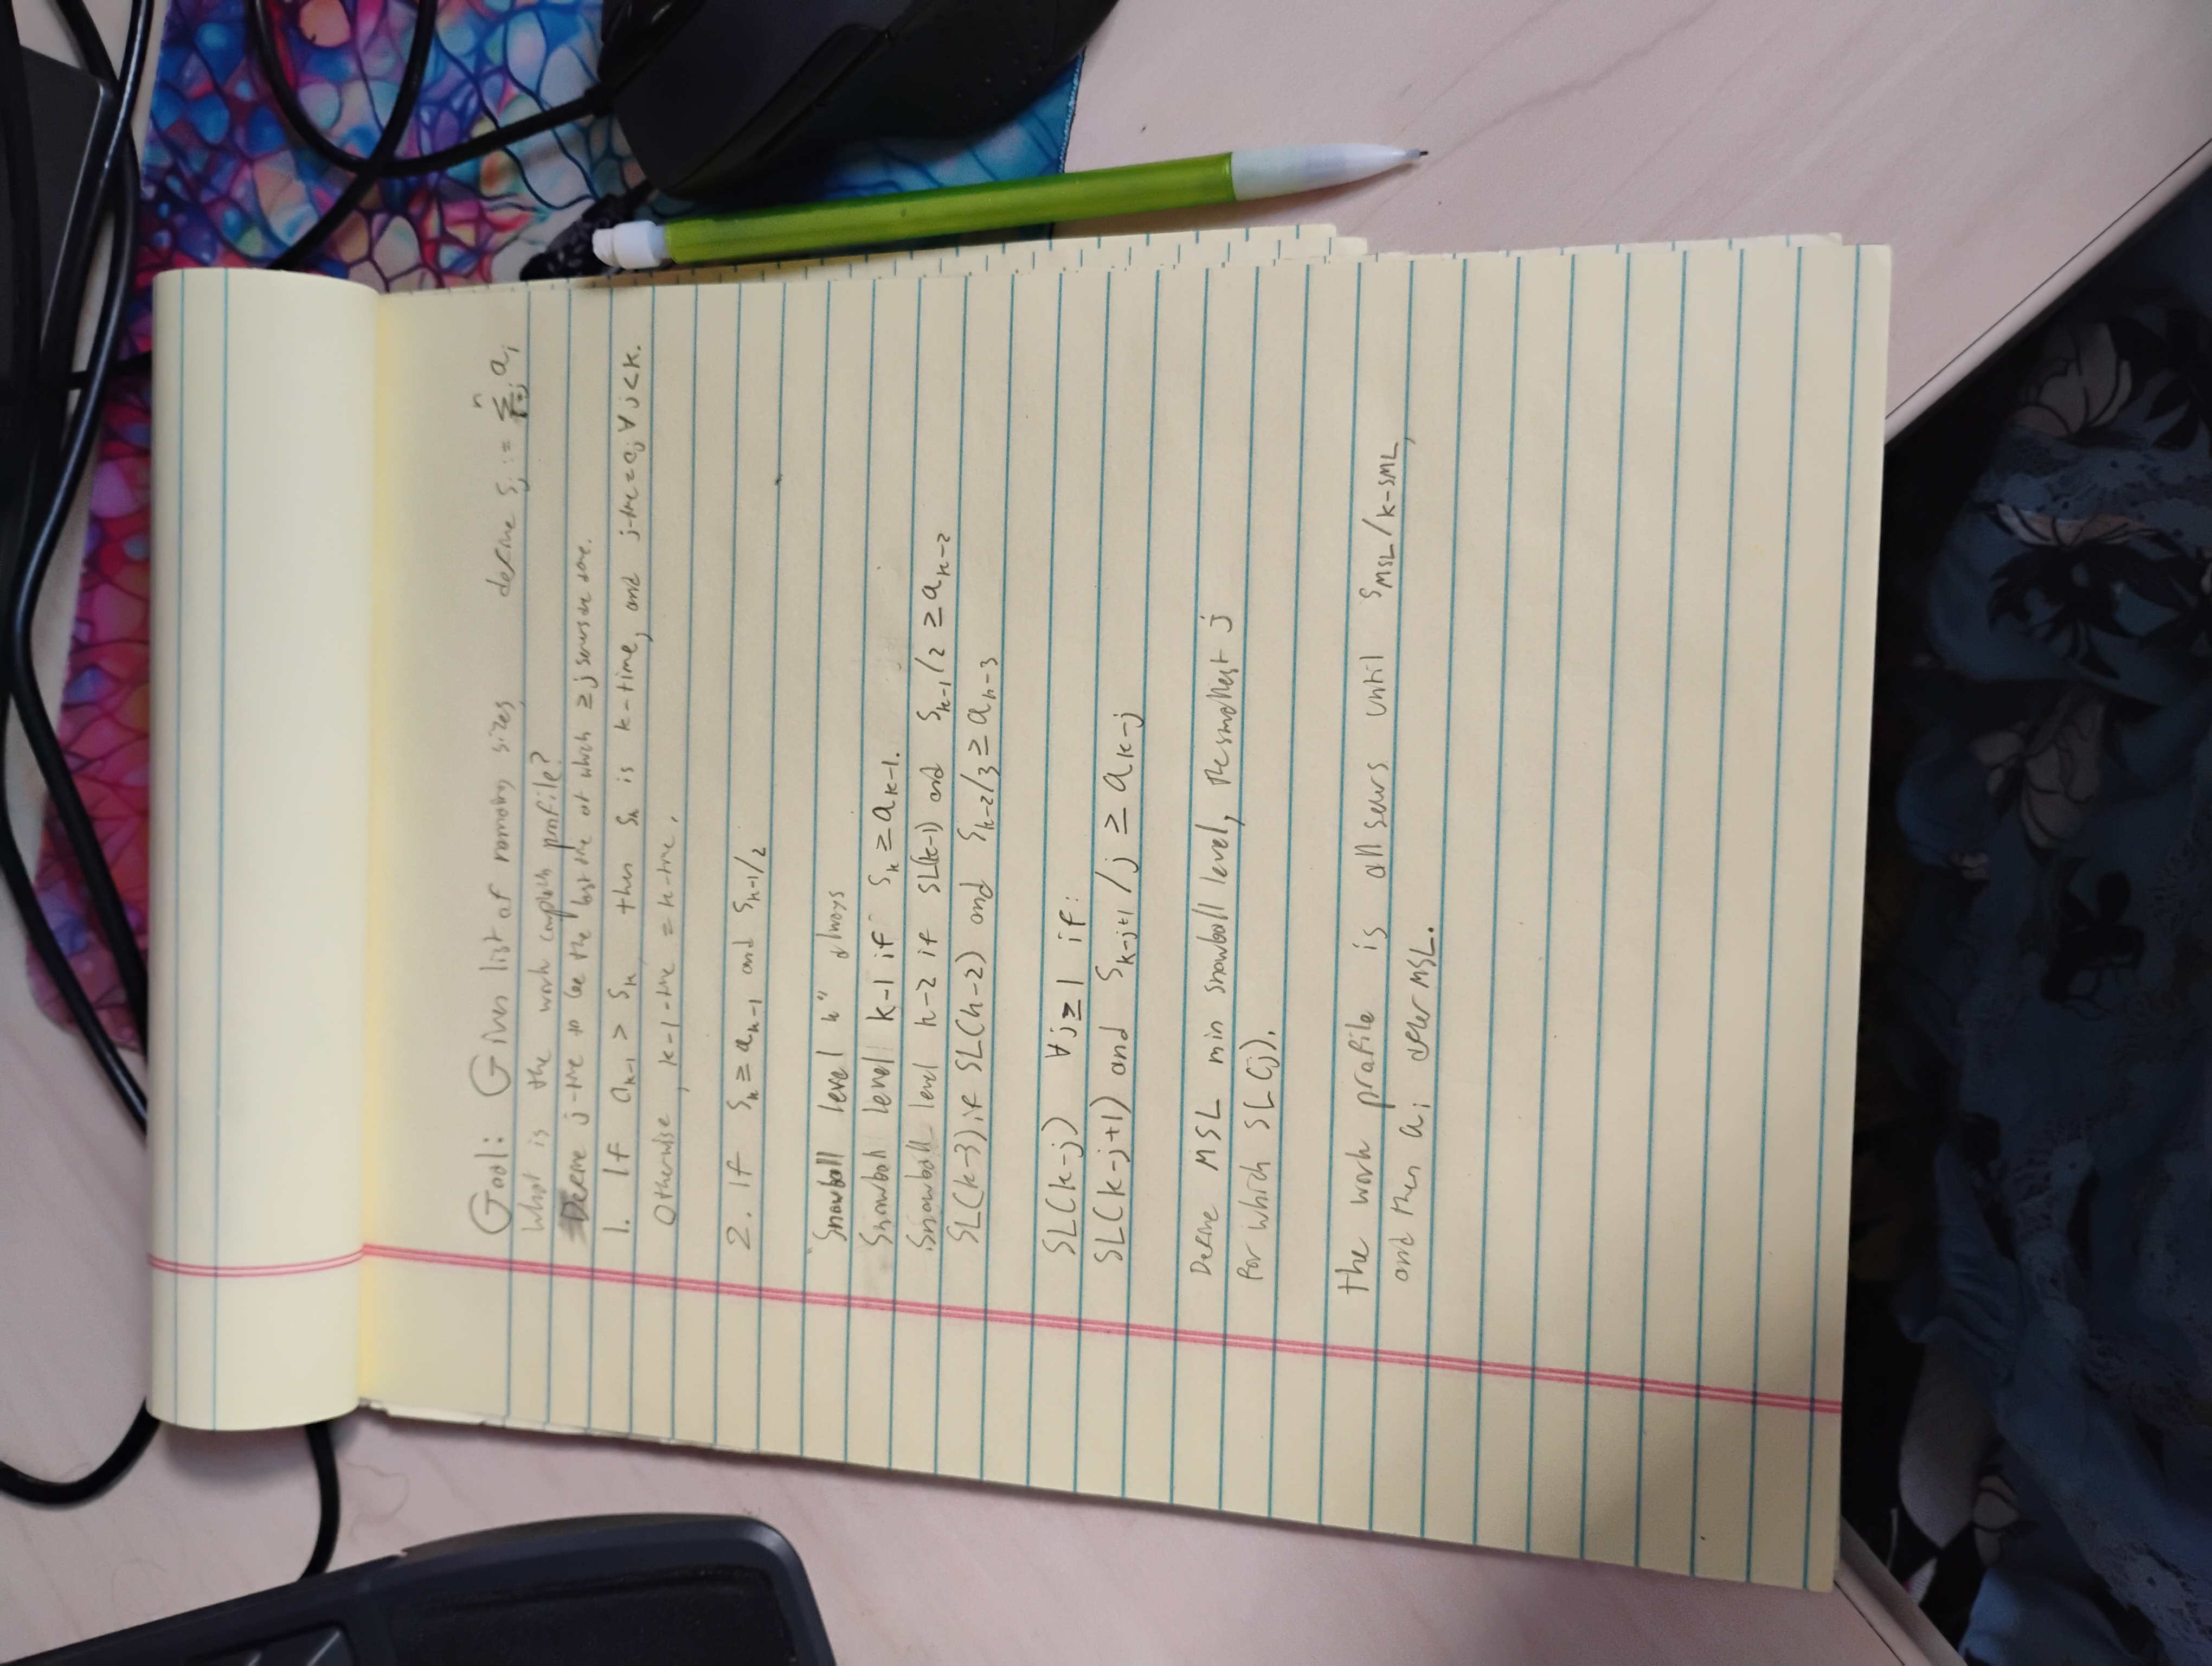 Goal: Given list of remaining sizes, define S_j := Σ_{i=j}^n a_i
What is the work completion profile?
Define j-time to be the last time at which ≥ j servers are done.
1. If a_{k-1} > S_k, then S_k is k-time, and j-time = a_j ∀ j < k.
Otherwise, k-1-time = k-time.
2. If S_k ≥ a_{k-1} and S_{k-1}/2
"Snowball level k" always
Snowball level k-1 if S_k ≥ a_{k-1}.
Snowball level k-2 if SL(k-1) and S_{k-1}/2 ≥ a_{k-2}
SL(k-3) if SL(k-2) and S_{k-2}/3 ≥ a_{k-3}
SL(k-j) ∀ j ≥ 1 if:
SL(k-j+1) and S_{k-j+1}/j ≥ a_{k-j}
Define MSL min snowball level, the smallest j
for which SL(j).
the work profile is all servers until S_{MSL}/k-SML,
and then a_i after MSL.